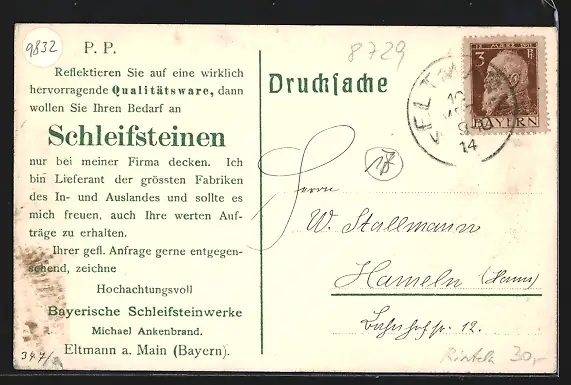 9832
P. P.
Reflektieren Sie auf eine wirklich
hervorragende Qualitätsware, dann
wollen Sie Ihren Bedarf an
Schleifsteinen
nur bei meiner Firma decken. Ich
bin Lieferant der grössten Fabriken
des In- und Auslandes und sollte es
mich freuen, auch Ihre werten Auf-
träge zu erhalten.
Ihrer gefl. Anfrage gerne entgegen-
sehend, zeichne
Hochachtungsvoll
Bayerische Schleifsteinwerke
Michael Ankenbrand.
Eltmann a. Main (Bayern).
347/
8729
Drucksache
3 Pf
BAYERN
ELTMANN
14
Herrn
W. Stallmann
Hameln (Hann)
Bahnhofstr. 12.
Rinteln 30,-